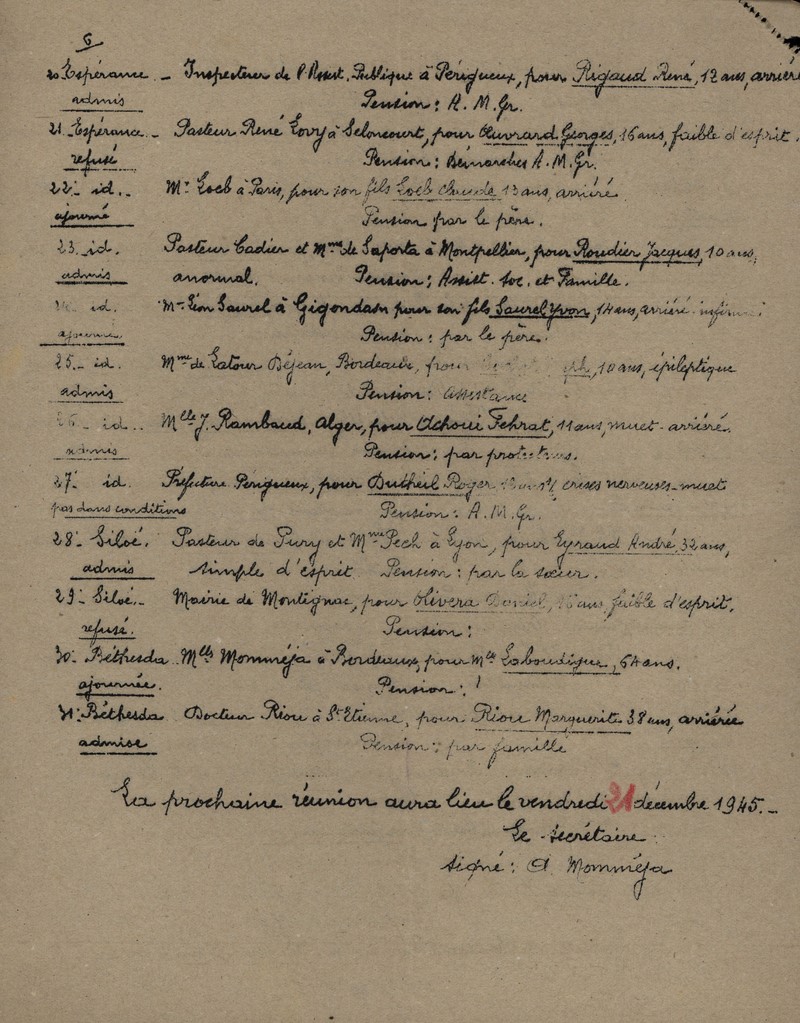 6
20 Espérance. - Inspecteur de l'Assist. Publique à Périgueux, pour Rigaud René, 12 ans, arriéré
admis Pension: A. M. Gr.
21. Espérance. - Pasteur René Lovy à Seloncourt, pour Ouvrard Georges, 16 ans, faible d'esprit.
refusé Pension: Démarches A. M. Gr.
22. id. - Mr Loeb à Paris, pour son fils Loeb Claude 13 ans, arriéré
ajourné Pension par le père.
23. id. Pasteur Cadier et Mme de Saporta à Montpellier, pour Roudier Jacques, 10 ans,
admis anormal. Pension: Assist. Soc. et Famille.
id. Mr Léon Saurel à Gigondasn pour son fils Saurel Yvon, 14 ans, arriéré infirme
ajourné Pension: par le père.
25. id. Mme de Latour Déjean, Bordeaux, pour 10 ans, épileptique
admis Pension: assistance
26. id. - Mlle J. Rambaud, Alger, pour Achoui Fehrat, 11 ans, muet - arriéré.
admis Pension: par protecteurs.
27. id. Préfecture Périgueux, pour Dutheil Roger crises nerveuses - muet
pas dans conditions Pension: A. M. Gr.
28. Siloé. Pasteur de Pury et Mme Pech à Lyon, pour Eyraud André, 32 ans,
admis simple d'esprit Pension: par la soeur.
29. Siloé. - Mairie de Montignac, pour Olivera Daniel, 16 ans, faible d'esprit.
refusé. Pension:
30. Béthesda. Mlle Momméja à Bordeaux, pour Mlle Laboudigue, 64 ans.
ajournée. Pension: !
31. Béthesda Docteur Riou à St Etienne, pour Riou Marguerite 38 ans, arriérée
admise Pension: par famille
La prochaine réunion aura lieu le vendredi 21 décembre 1945. -
Le secrétaire.
signé: A Momméja